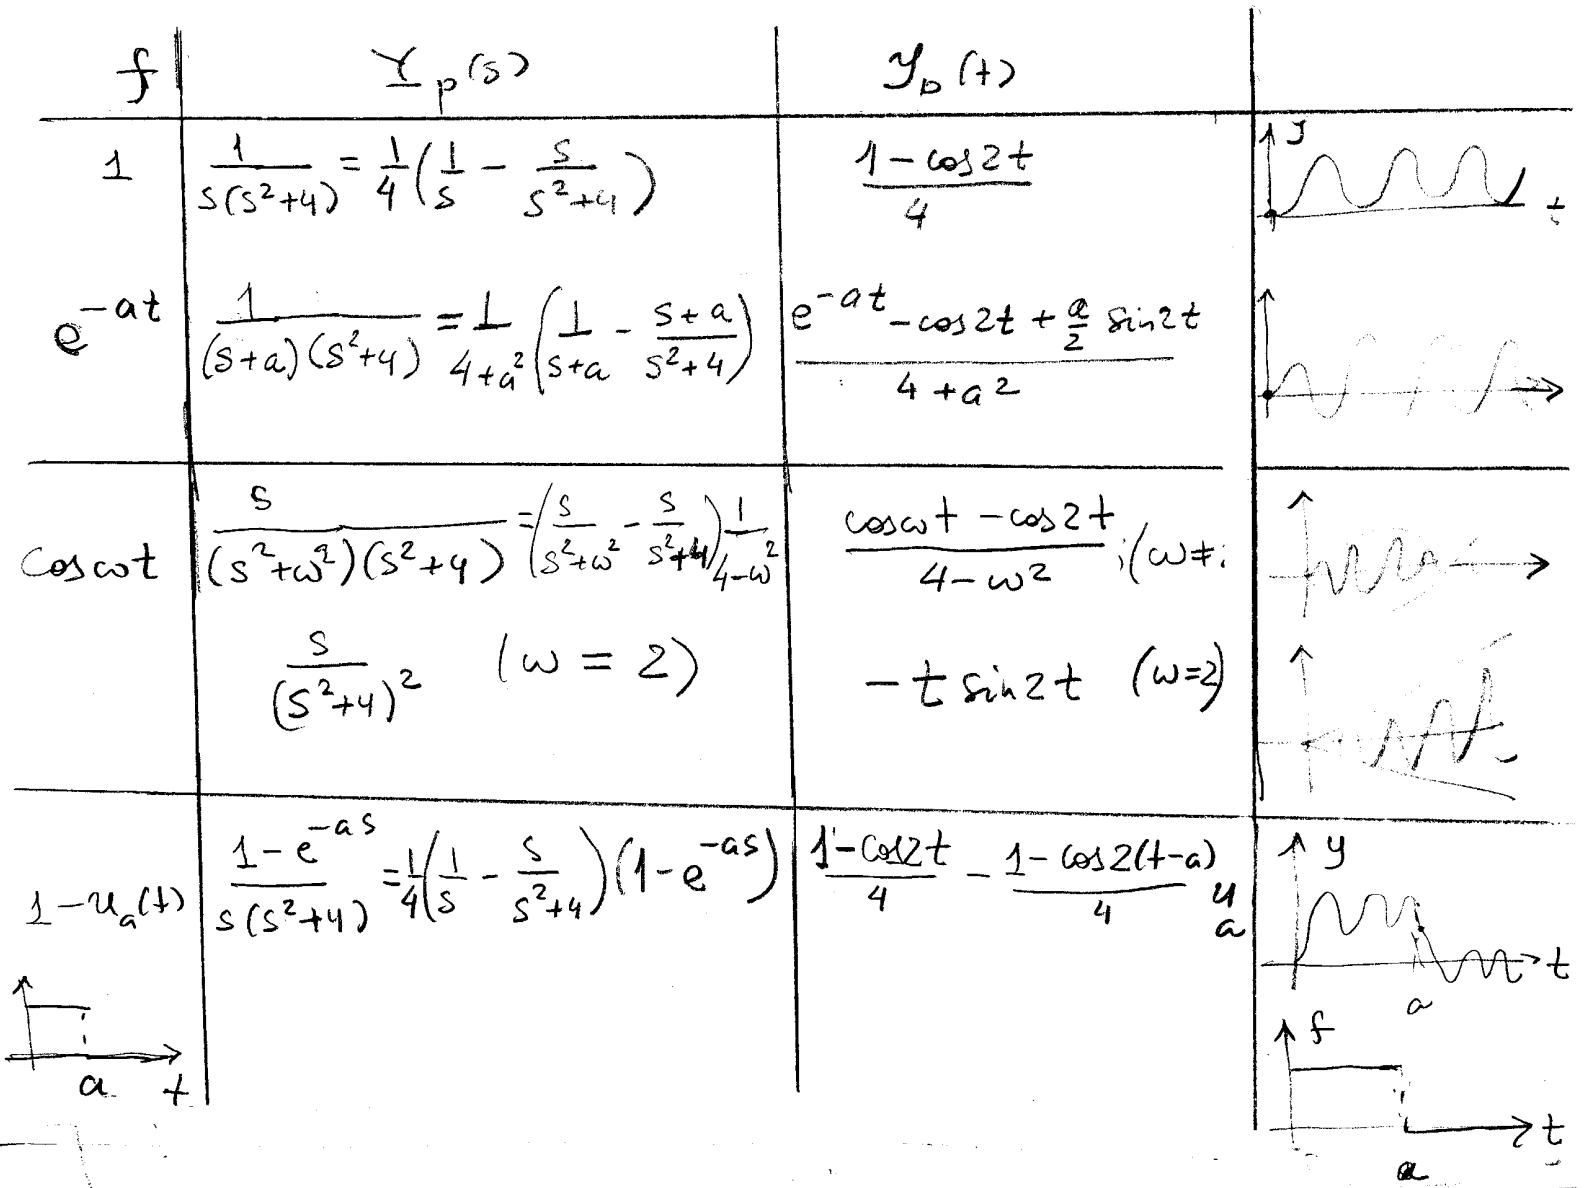 f Y_p(s) y_p(t)
1 1/(s(s²+4)) = 1/4 (1/s - s/(s²+4)) (1-cos2t)/4
y
t
e^{-at} 1/((s+a)(s²+4)) = 1/(4+a²) (1/(s+a) - (s+a)/(s²+4)) (e^{-at} - cos2t + a/2 sin2t)/(4+a²)
cosωt s/((s²+ω²)(s²+4)) = (s/(s²+ω²) - s/(s²+4)) 1/(4-ω²) (cosωt - cos2t)/(4-ω²) ; (ω≠
s/(s²+4)² (ω = 2) -t sin2t (ω=2)
1-u_a(t) (1-e^{-as})/(s(s²+4)) = 1/4 (1/s - s/(s²+4)) (1-e^{-as}) (1-cos2t)/4 - (1-cos2(t-a))/4 u_a
y
t
a
a t
f
t
a